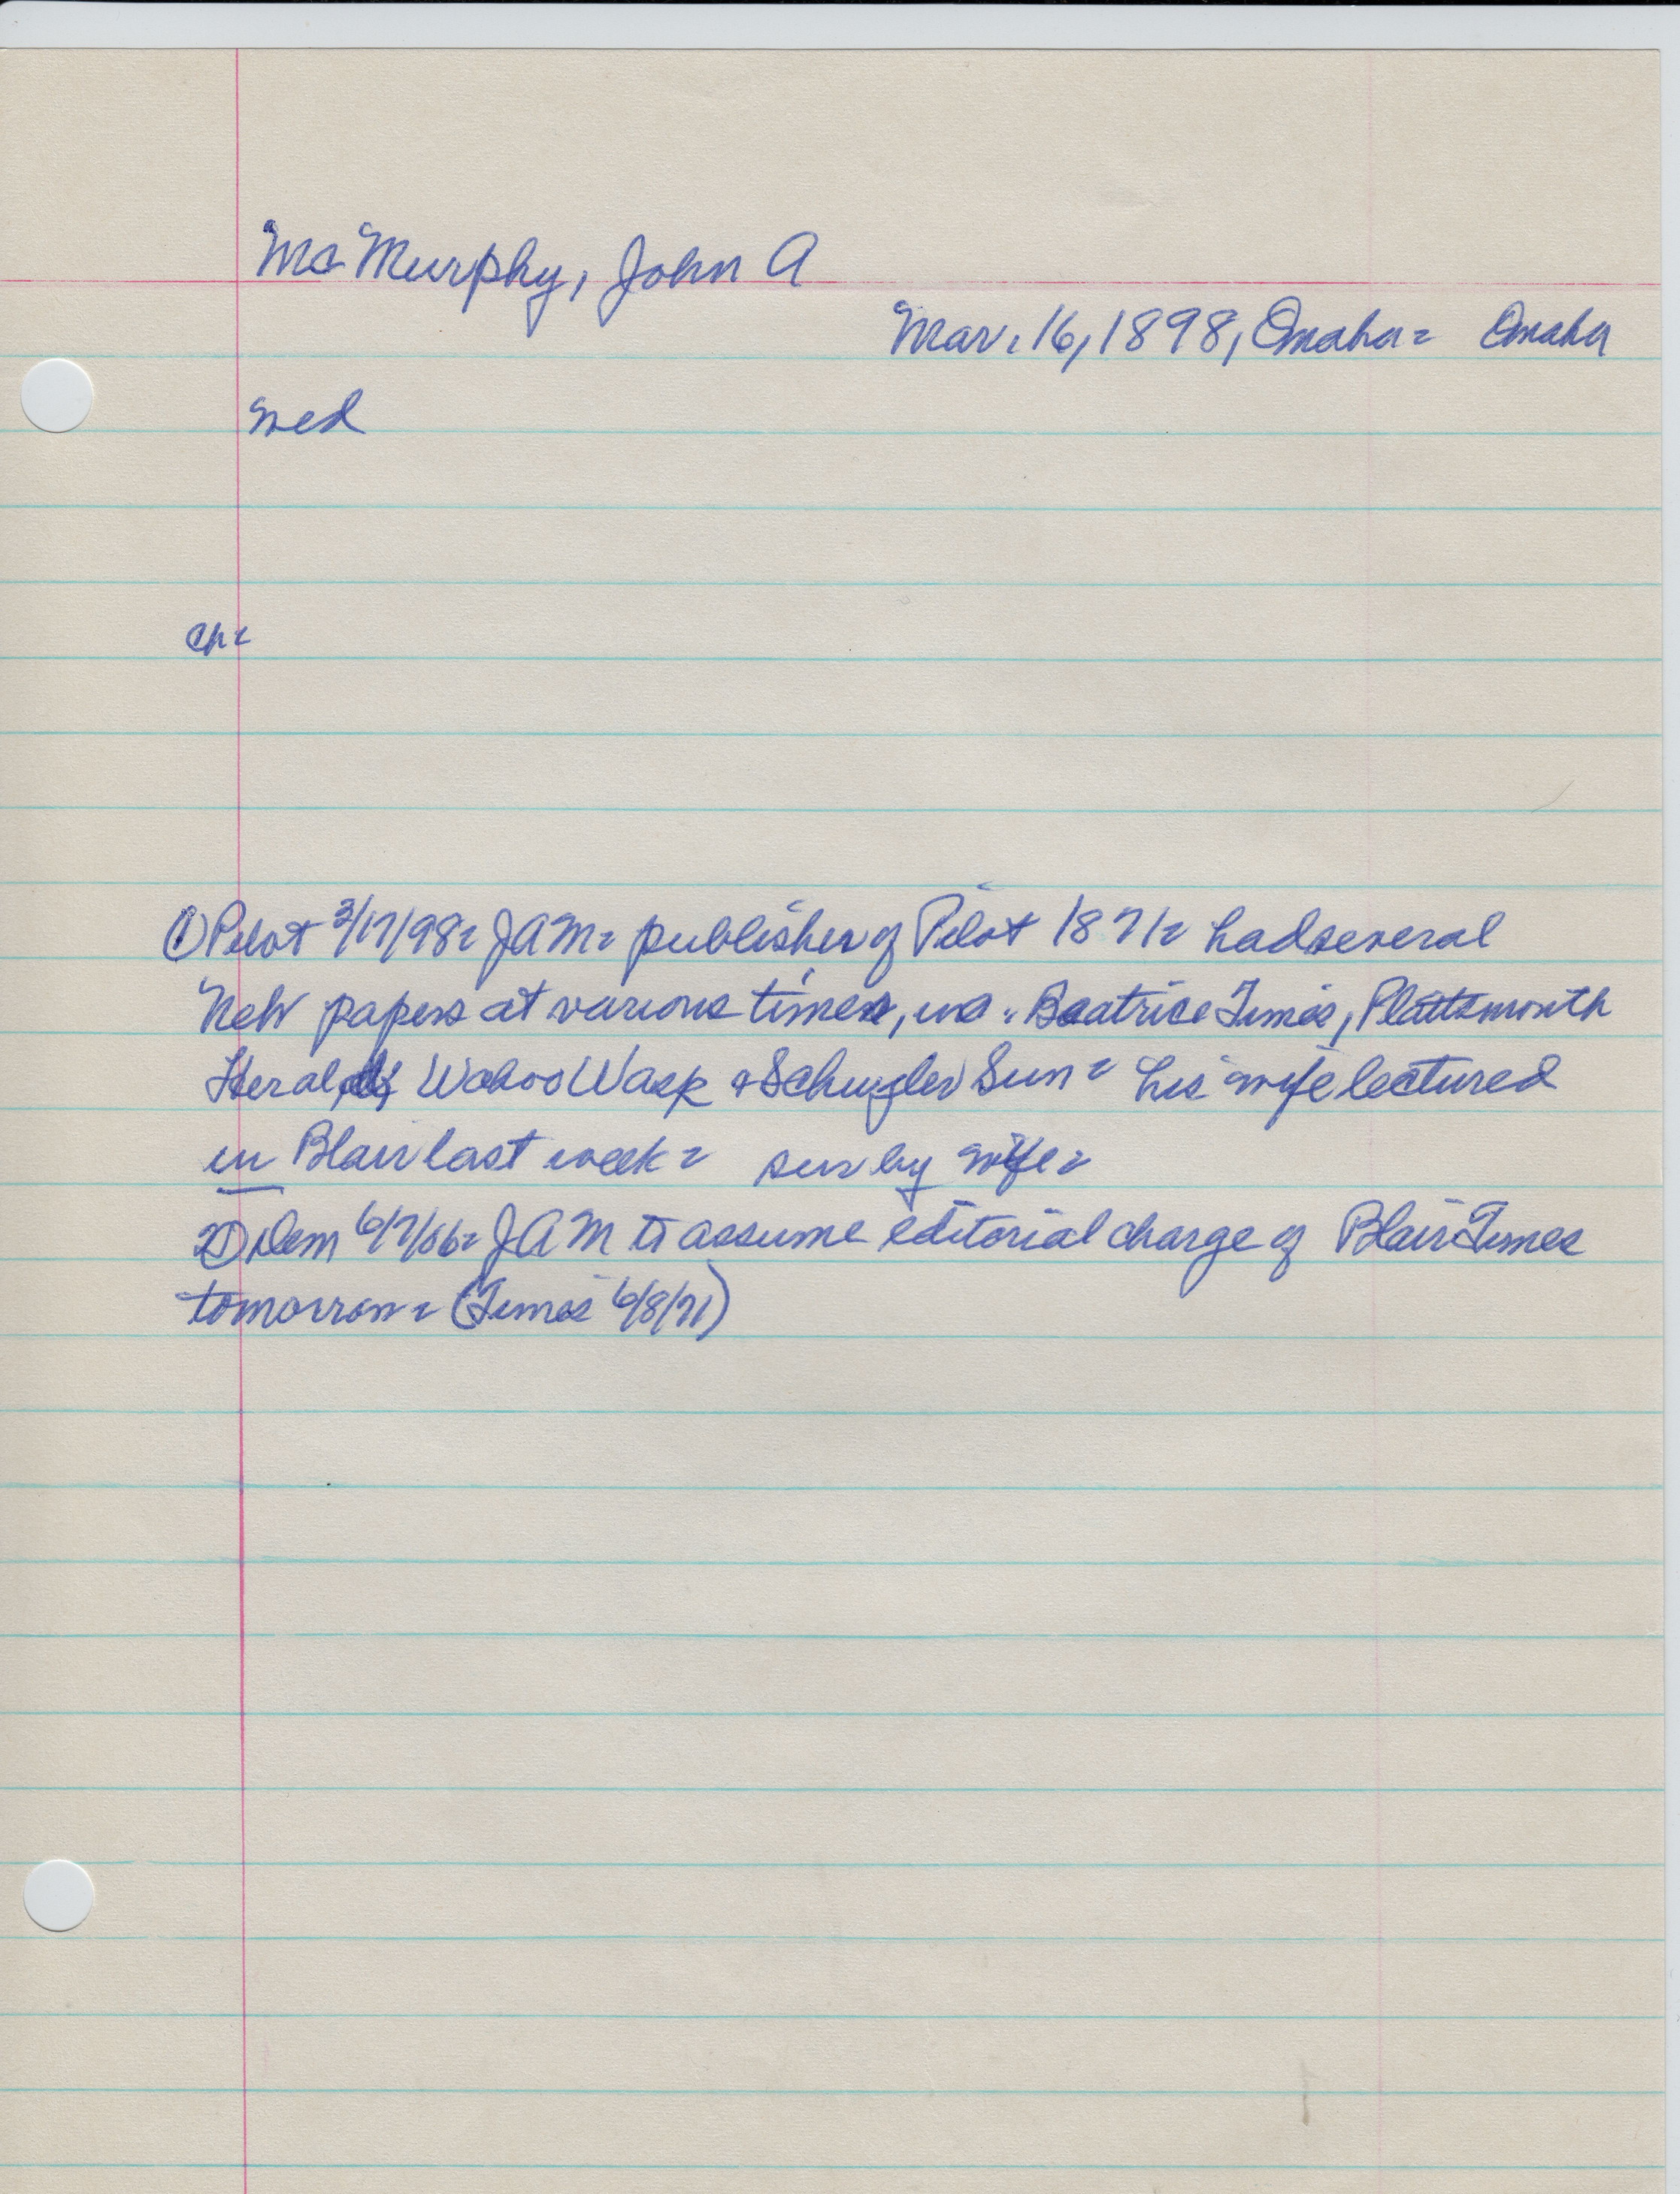 McMurphy, John A
Mar. 16, 1898, Omaha = Omaha
wed
ch =
① Pilot 3/17/98 = JAM = publisher of Pilot 1871 = had several
Neb papers at various times, Beatrice Times, Plattsmouth
Herald, Wahoo Wasp & Schuyler Sun = his wife lectured
in Blair last week = sur by wife =
② Dem 6/7/06 = JAM to assume editorial charge of Blair Times
tomorrow = (Times 6/8/71)